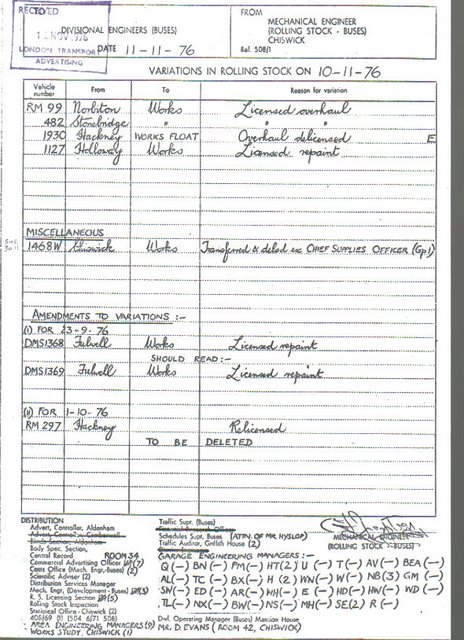 RECEIVED
12 NOV 1976
LONDON TRANSPORT
ADVERTISING
TO
DIVISIONAL ENGINEERS (BUSES)
DATE 11-11-76
FROM
MECHANICAL ENGINEER
(ROLLING STOCK - BUSES)
CHISWICK
Ref. 508/1
VARIATIONS IN ROLLING STOCK ON 10-11-76
Vehicle number From To Reason for variation
RM 99 Norbiton Works Licensed overhaul
482 Stonebridge " " "
1930 Hackney WORKS FLOAT Overhaul delicensed E
1127 Holloway Works Licensed repaint
MISCELLANEOUS
1468W Chiswick Works Transferred & deltd ex CHIEF SUPPLIES OFFICER (Gp 1)
AMENDMENTS TO VARIATIONS :-
(i) FOR 23-9-76
DMS1368 Fulwell Works Licensed repaint
SHOULD READ :-
DMS1369 Fulwell Works Licensed repaint
(ii) FOR 1-10-76
RM 297 Hackney Relicensed
TO BE DELETED
DISTRIBUTION
Advert. Controller, Aldenham
Advert. Controller, Camberwell
Body Spec. Section,
Central Record ROOM 34
Commercial Advertising Officer (7)
Costs Office (Mech. Engr., Buses) (2)
Scientific Adviser (2)
Distribution Services Manager
Mech. Engr. (Development - Buses) (3)
R. S. Licensing Section (5)
Rolling Stock Inspection
Statistical Office - Chiswick (2)
405/169 (1) 504 6/71 508
AREA ENGINEERING MANAGERS (9)
WORKS STUDY, CHISWICK (1)
Traffic Supt. (Buses)
Schedules Supt. Buses (ATTN OF MR HYSLOP)
Traffic Auditor, Griffith House (2)
MECHANICAL ENGINEER
(ROLLING STOCK - BUSES)
GARAGE ENGINEERING MANAGERS :-
Q (-) BN (-) PM (-) HT (2) U (-) T (-) AV (-) BEA (-)
AL (-) TC (-) BX (-) H (2) WN (-) W (-) NB (3) GM (-)
SN (-) ED (-) AR (-) WH (-) E (-) HD (-) HW (-) WD (-)
TL (-) NX (-) BW (-) NS (-) MH (-) SE (2) R (-)
Dvl. Operating Manager (Buses) Marcian House
MR. D. EVANS (ROOM 42, CHISWICK)